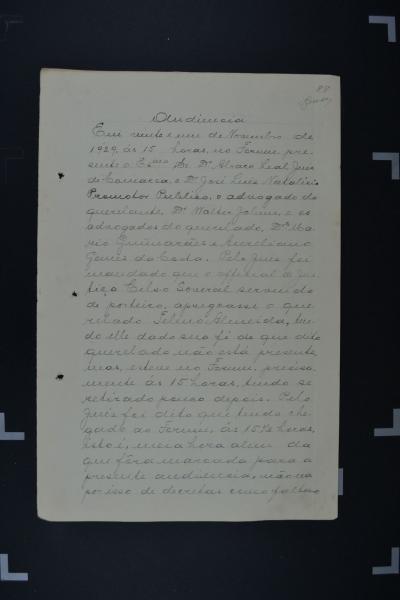 88
Audiencia
Em vinte e um de Novembro de
1929, ás 15 horas, no Forum, pre-
sente o Exmo Sr. Dr. Alvaro Leal, Juis
de Comarca, o Dr. José Luis Natalicio
Promotor Publico, o advogado do
querelante, Dr. Walter Jobim, e os
advogados do querelado, Drs. Ma-
rio Guimarães e Aureliano
Gomes da Costa. Pelo Juis foi
mandado que o official de Jus-
tiça Celso Soveral servindo
de porteiro, apregoasse o que-
relado Telmo Almeida, ten-
do elle dado sua fé de que dito
querelado não está presente,
mas, esteve no Forum, precisa-
mente ás 15 horas, tendo se
retirado pouco depois. Pelo
Juis foi dito que tendo che-
gado ao Forum, ás 15 1/2 horas,
isto é, meia hora alem da
que fôra marcada para a
presente audiencia, não
por isso de decretar como faltoso